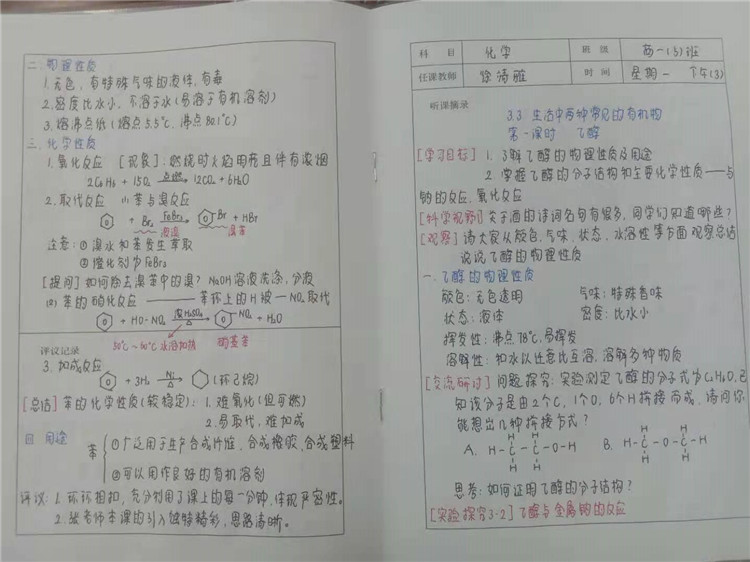 二. 物理性质
1. 无色，有特殊气味的液体，有毒
2. 密度比水小，不溶于水(易溶于有机溶剂)
3. 熔沸点低(熔点5.5℃ 沸点80.1℃)
三. 化学性质
1. 氧化反应 [现象]：燃烧时火焰明亮且伴有浓烟
2C₆H₆ + 15O₂ 点燃→ 12CO₂ + 6H₂O
2. 取代反应 (1)苯与溴反应
+ Br₂ FeBr₃→ Br + HBr
液溴 溴苯
注意：① 溴水和苯发生萃取
② 催化剂为FeBr₃
[提问] 如何除去溴苯中的溴？NaOH溶液洗涤，分液
(2) 苯的硝化反应 —— 苯环上的H被—NO₂取代
+ HO-NO₂ 浓H₂SO₄ △→ NO₂ + H₂O
50℃~60℃水浴加热 硝基苯
评议记录
3. 加成反应
+ 3H₂ Ni △→ (环己烷)
[总结] 苯的化学性质(较稳定)：1. 难氧化(但可燃)
2. 易取代，难加成
四 用途
苯
① 广泛用于生产合成纤维、合成橡胶、合成塑料
② 可以用作良好的有机溶剂
评议：1. 环环相扣，充分利用了课上的每一分钟，体现严密性。
2. 张老师本课的引入独特精彩，思路清晰。
科 目 化学 班 级 高一(5)班
任课教师 徐清雅 时 间 星期一 下午(3)
听课摘录
3.3 生活中两种常见的有机物
第一课时 乙醇
[学习目标] 1. 了解乙醇的物理性质及用途
2. 掌握乙醇的分子结构和主要化学性质——与
钠的反应、氧化反应
[科学视野] 关于酒的诗词名句有很多，同学们知道哪些？
[观察] 请大家从颜色、气味、状态、水溶性等方面观察总结
说说乙醇的物理性质
一. 乙醇的物理性质
颜色：无色透明 气味：特殊香味
状态：液体 密度：比水小
挥发性：沸点78℃，易挥发
溶解性：和水以任意比互溶，溶解多种物质
[交流研讨] 问题探究：实验测定乙醇的分子式为C₂H₆O，已
知该分子是由2个C，1个O，6个H拼接而成，请问你
能想出几种拼接方式？
H H H H
A. H-C-C-O-H B. H-C-O-C-H
H H H H
思考：如何证明乙醇的分子结构？
[实验探究3-2] 乙醇与金属钠的反应